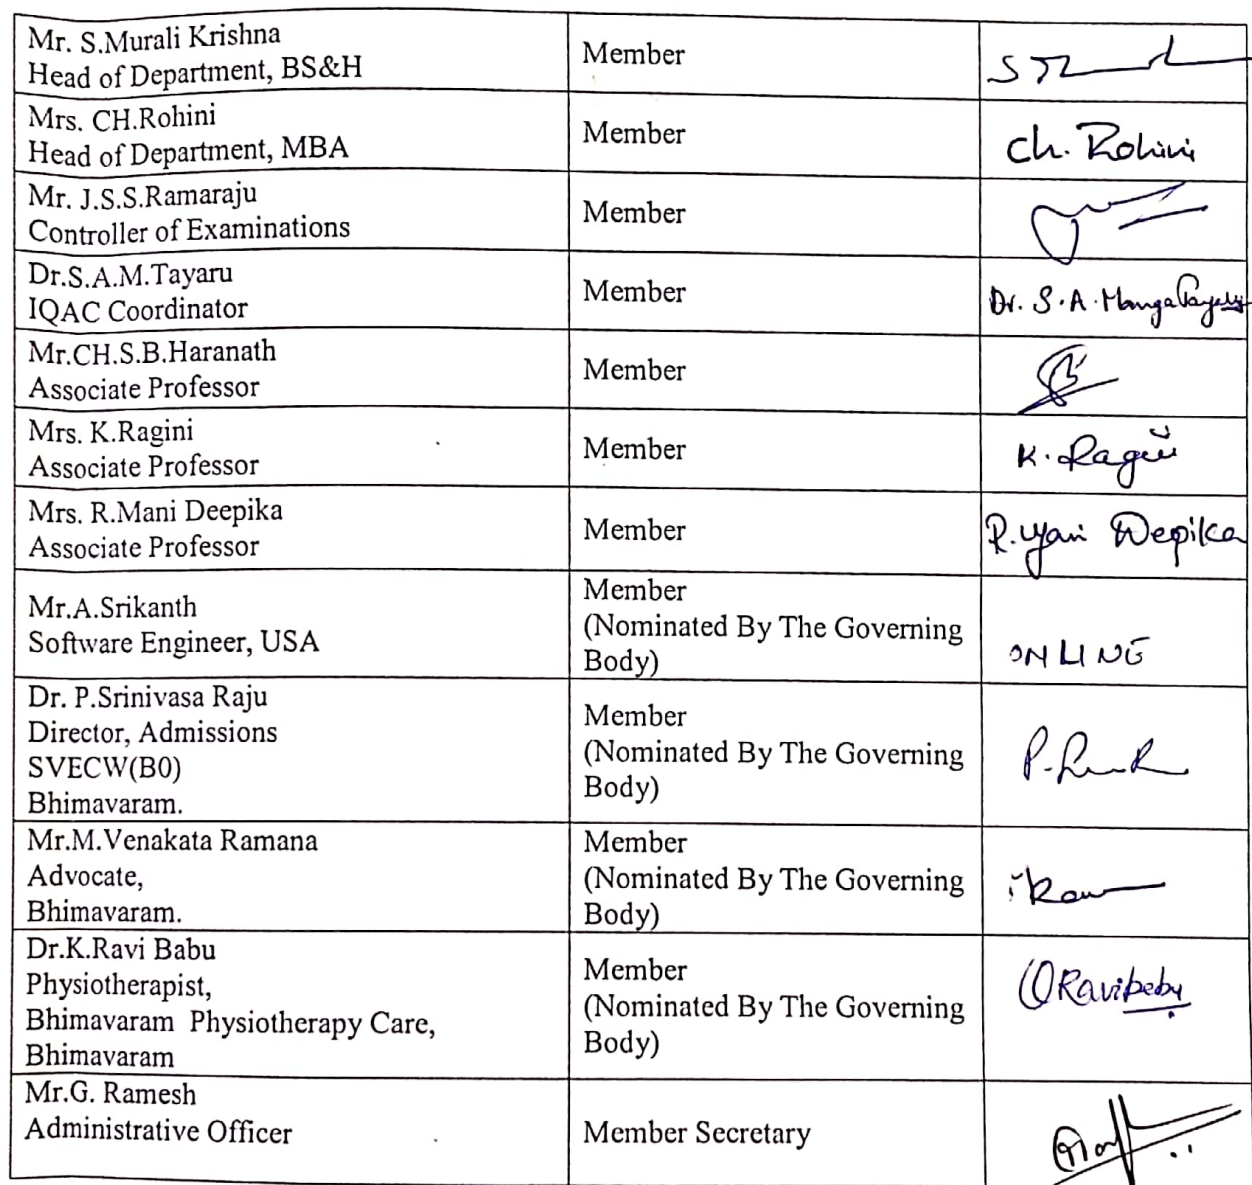 Mr. S.Murali Krishna
Head of Department, BS&H
Member
Mrs. CH.Rohini
Head of Department, MBA
Member
Ch. Rohini
Mr. J.S.S.Ramaraju
Controller of Examinations
Member
Dr.S.A.M.Tayaru
IQAC Coordinator
Member
Dr. S.A.Manga
Mr.CH.S.B.Haranath
Associate Professor
Member
Mrs. K.Ragini
Associate Professor
Member
K. Ragini
Mrs. R.Mani Deepika
Associate Professor
Member
R. Mani Deepika
Mr.A.Srikanth
Software Engineer, USA
Member
(Nominated By The Governing
Body)
ONLINE
Dr. P.Srinivasa Raju
Director, Admissions
SVECW(B0)
Bhimavaram.
Member
(Nominated By The Governing
Body)
Mr.M.Venakata Ramana
Advocate,
Bhimavaram.
Member
(Nominated By The Governing
Body)
Dr.K.Ravi Babu
Physiotherapist,
Bhimavaram Physiotherapy Care,
Bhimavaram
Member
(Nominated By The Governing
Body)
Ravibabu
Mr.G. Ramesh
Administrative Officer
Member Secretary